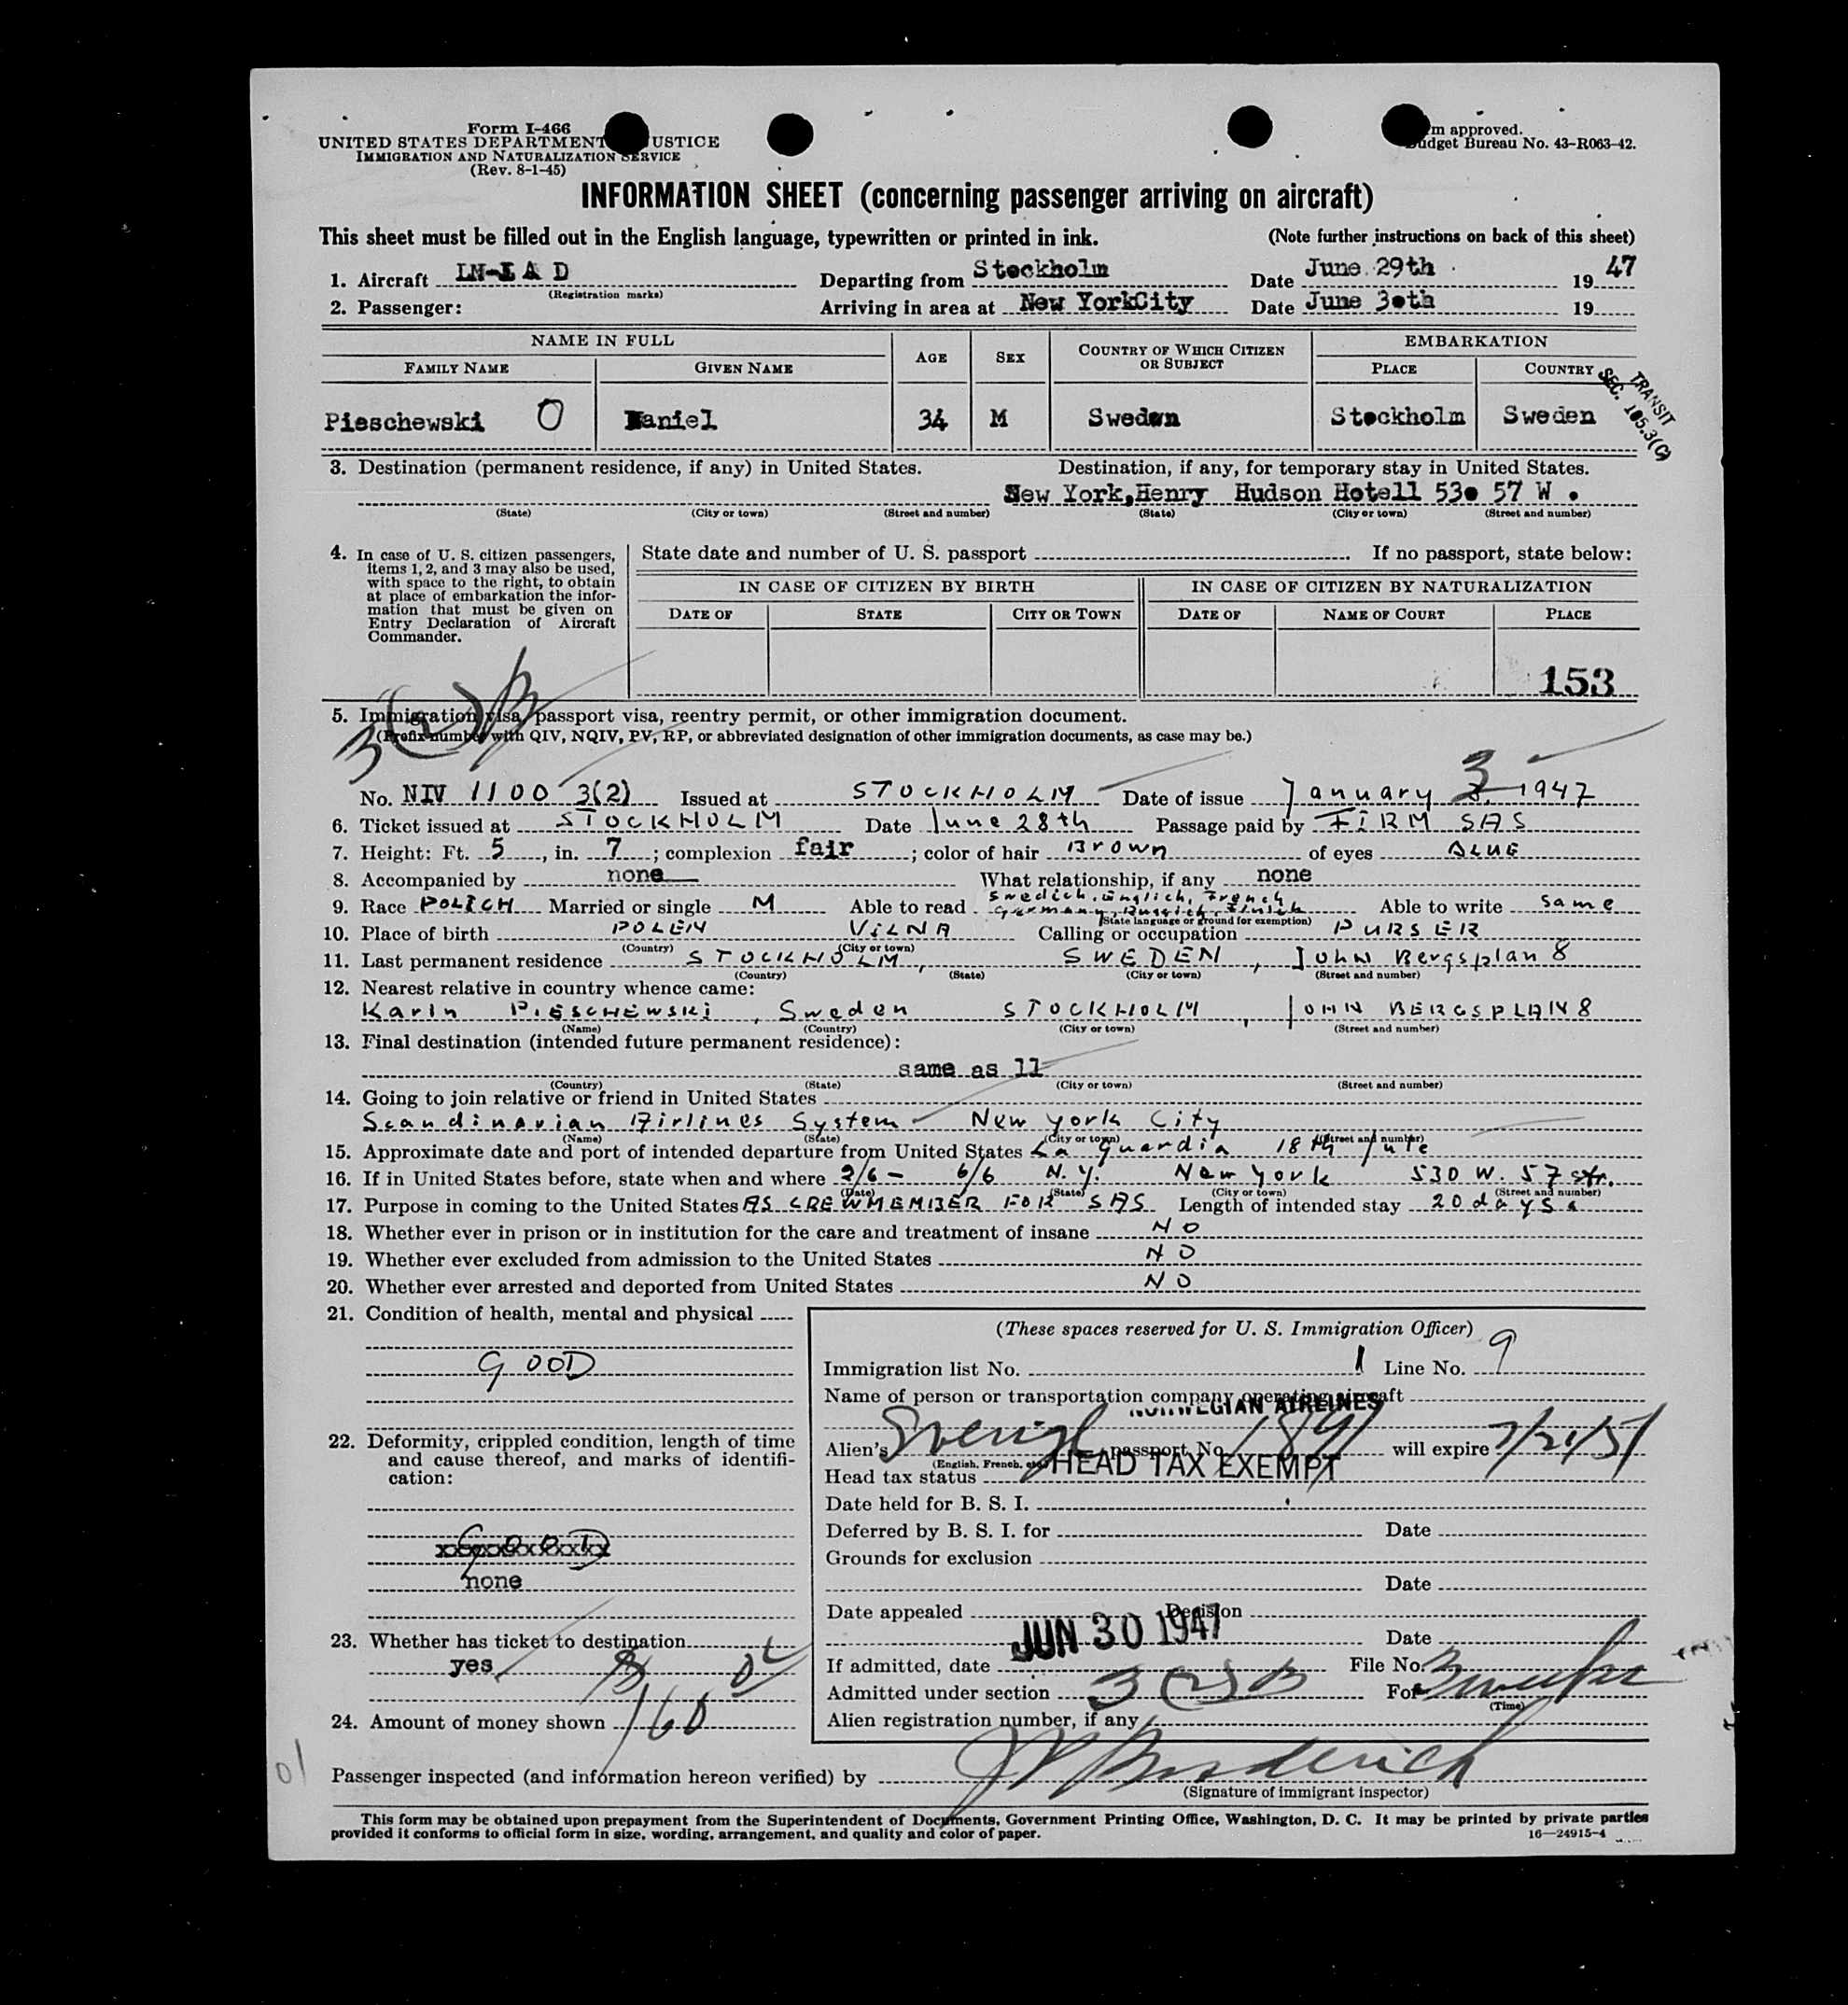 Form I-466
UNITED STATES DEPARTMENT USTICE
IMMIGRATION AND NATURALIZATION SERVICE
(Rev. 8-1-45)
m approved.
udget Bureau No. 43-R063-42.
INFORMATION SHEET (concerning passenger arriving on aircraft)
This sheet must be filled out in the English language, typewritten or printed in ink. (Note further instructions on back of this sheet)
1. Aircraft LN-IAD Departing from Stockholm Date June 29th 1947
(Registration marks)
2. Passenger: Arriving in area at New YorkCity Date June 30th 19
NAME IN FULL AGE SEX COUNTRY OF WHICH CITIZEN OR SUBJECT EMBARKATION
FAMILY NAME GIVEN NAME PLACE COUNTRY
TRANSIT
SEC. 105.3(C)
Pieschewski O Daniel 34 M Sweden Stockholm Sweden
3. Destination (permanent residence, if any) in United States. Destination, if any, for temporary stay in United States.
New York,Henry Hudson Hotell 530 57 W.
(State) (City or town) (Street and number) (State) (City or town) (Street and number)
4. In case of U. S. citizen passengers, items 1, 2, and 3 may also be used, with space to the right, to obtain at place of embarkation the information that must be given on Entry Declaration of Aircraft Commander.
State date and number of U. S. passport If no passport, state below:
IN CASE OF CITIZEN BY BIRTH IN CASE OF CITIZEN BY NATURALIZATION
DATE OF STATE CITY OR TOWN DATE OF NAME OF COURT PLACE
153
5. Immigration visa, passport visa, reentry permit, or other immigration document.
3(2)B
(Prefix number with QIV, NQIV, PV, RP, or abbreviated designation of other immigration documents, as case may be.)
No. NIV 1100 3(2) Issued at STOCKHOLM Date of issue January 3 1947
6. Ticket issued at STOCKHOLM Date June 28th Passage paid by FIRM SAS
7. Height: Ft. 5, in. 7; complexion fair; color of hair Brown of eyes BLUE
8. Accompanied by none What relationship, if any none
9. Race POLICH Married or single M Able to read Swedich, Englich, French Germany, Russich, Finich Able to write same
(State language or ground for exemption)
10. Place of birth POLEN VILNA Calling or occupation PURSER
(Country) (City or town)
11. Last permanent residence STOCKHOLM, SWEDEN, John Bergsplan 8
(Country) (State) (City or town) (Street and number)
12. Nearest relative in country whence came:
Karin PIESCHEWSKI, Sweden STOCKHOLM, JOHN BERGSPLAN 8
(Name) (Country) (City or town) (Street and number)
13. Final destination (intended future permanent residence):
same as 11
(Country) (State) (City or town) (Street and number)
14. Going to join relative or friend in United States
Scandinavian Airlines System New York City
(Name) (State) (City or town) (Street and number)
15. Approximate date and port of intended departure from United States La Guardia 18th jule
16. If in United States before, state when and where 2/6 - 6/6 N.Y. New York 530 W. 57 str.
(Date) (State) (City or town) (Street and number)
17. Purpose in coming to the United States AS CREWMEMBER FOR SAS Length of intended stay 20 days
18. Whether ever in prison or in institution for the care and treatment of insane NO
19. Whether ever excluded from admission to the United States NO
20. Whether ever arrested and deported from United States NO
21. Condition of health, mental and physical
GOOD
22. Deformity, crippled condition, length of time and cause thereof, and marks of identification:
GOOD
none
23. Whether has ticket to destination
yes
24. Amount of money shown 160
(These spaces reserved for U. S. Immigration Officer)
Immigration list No. 1 Line No. 9
Name of person or transportation company operating aircraft
NORWEGIAN AIRLINES
Alien's passport No. will expire 7/21/51
(English, French, etc.)
Head tax status HEAD TAX EXEMPT
Date held for B. S. I.
Deferred by B. S. I. for Date
Grounds for exclusion
Date
Date appealed Decision
Date
JUN 30 1947
If admitted, date File No.
Admitted under section 3(2)B For
(Time)
Alien registration number, if any
01
Passenger inspected (and information hereon verified) by
(Signature of immigrant inspector)
This form may be obtained upon prepayment from the Superintendent of Documents, Government Printing Office, Washington, D. C. It may be printed by private parties
provided it conforms to official form in size, wording, arrangement, and quality and color of paper. 16—24915-4